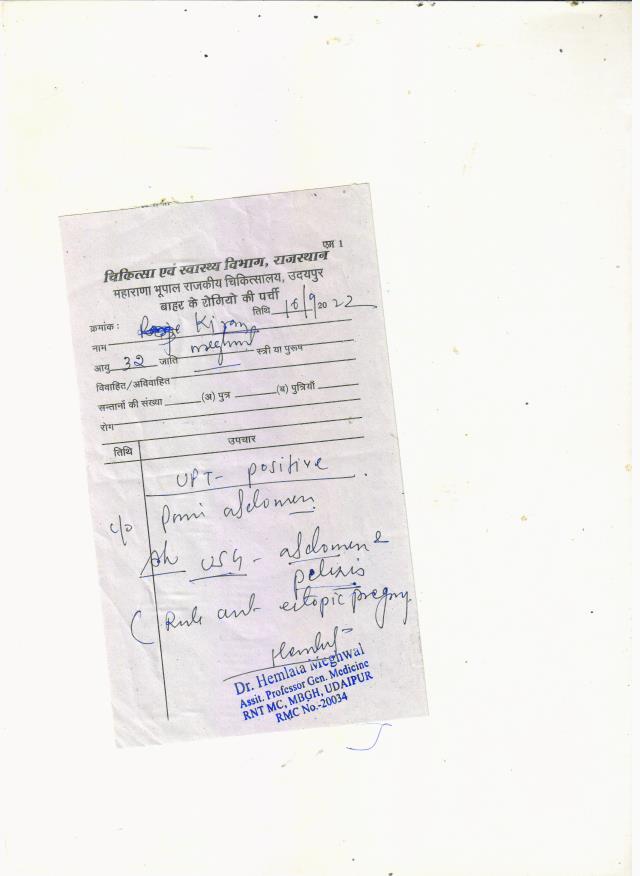 एम 1
चिकित्सा एवं स्वास्थ्य विभाग, राजस्थान
महाराणा भूपाल राजकीय चिकित्सालय, उदयपुर
बाहर के रोगियो की पर्ची
क्रमांक : तिथि 16/9/2022
नाम Kiran
आयु 32 जाति meghwal स्त्री या पुरूष
विवाहित/अविवाहित
सन्तानों की संख्या (अ) पुत्र (ब) पुत्रियाँ
रोग
तिथि उपचार
UPT- positive
c/o Pain abdomen
Adv USG - abdomen &
pelvis
( Rule out ectopic pregny.
Dr. Hemlata Meghwal
Assit. Professor Gen. Medicine
RNT MC, MBGH, UDAIPUR
RMC No.-20034